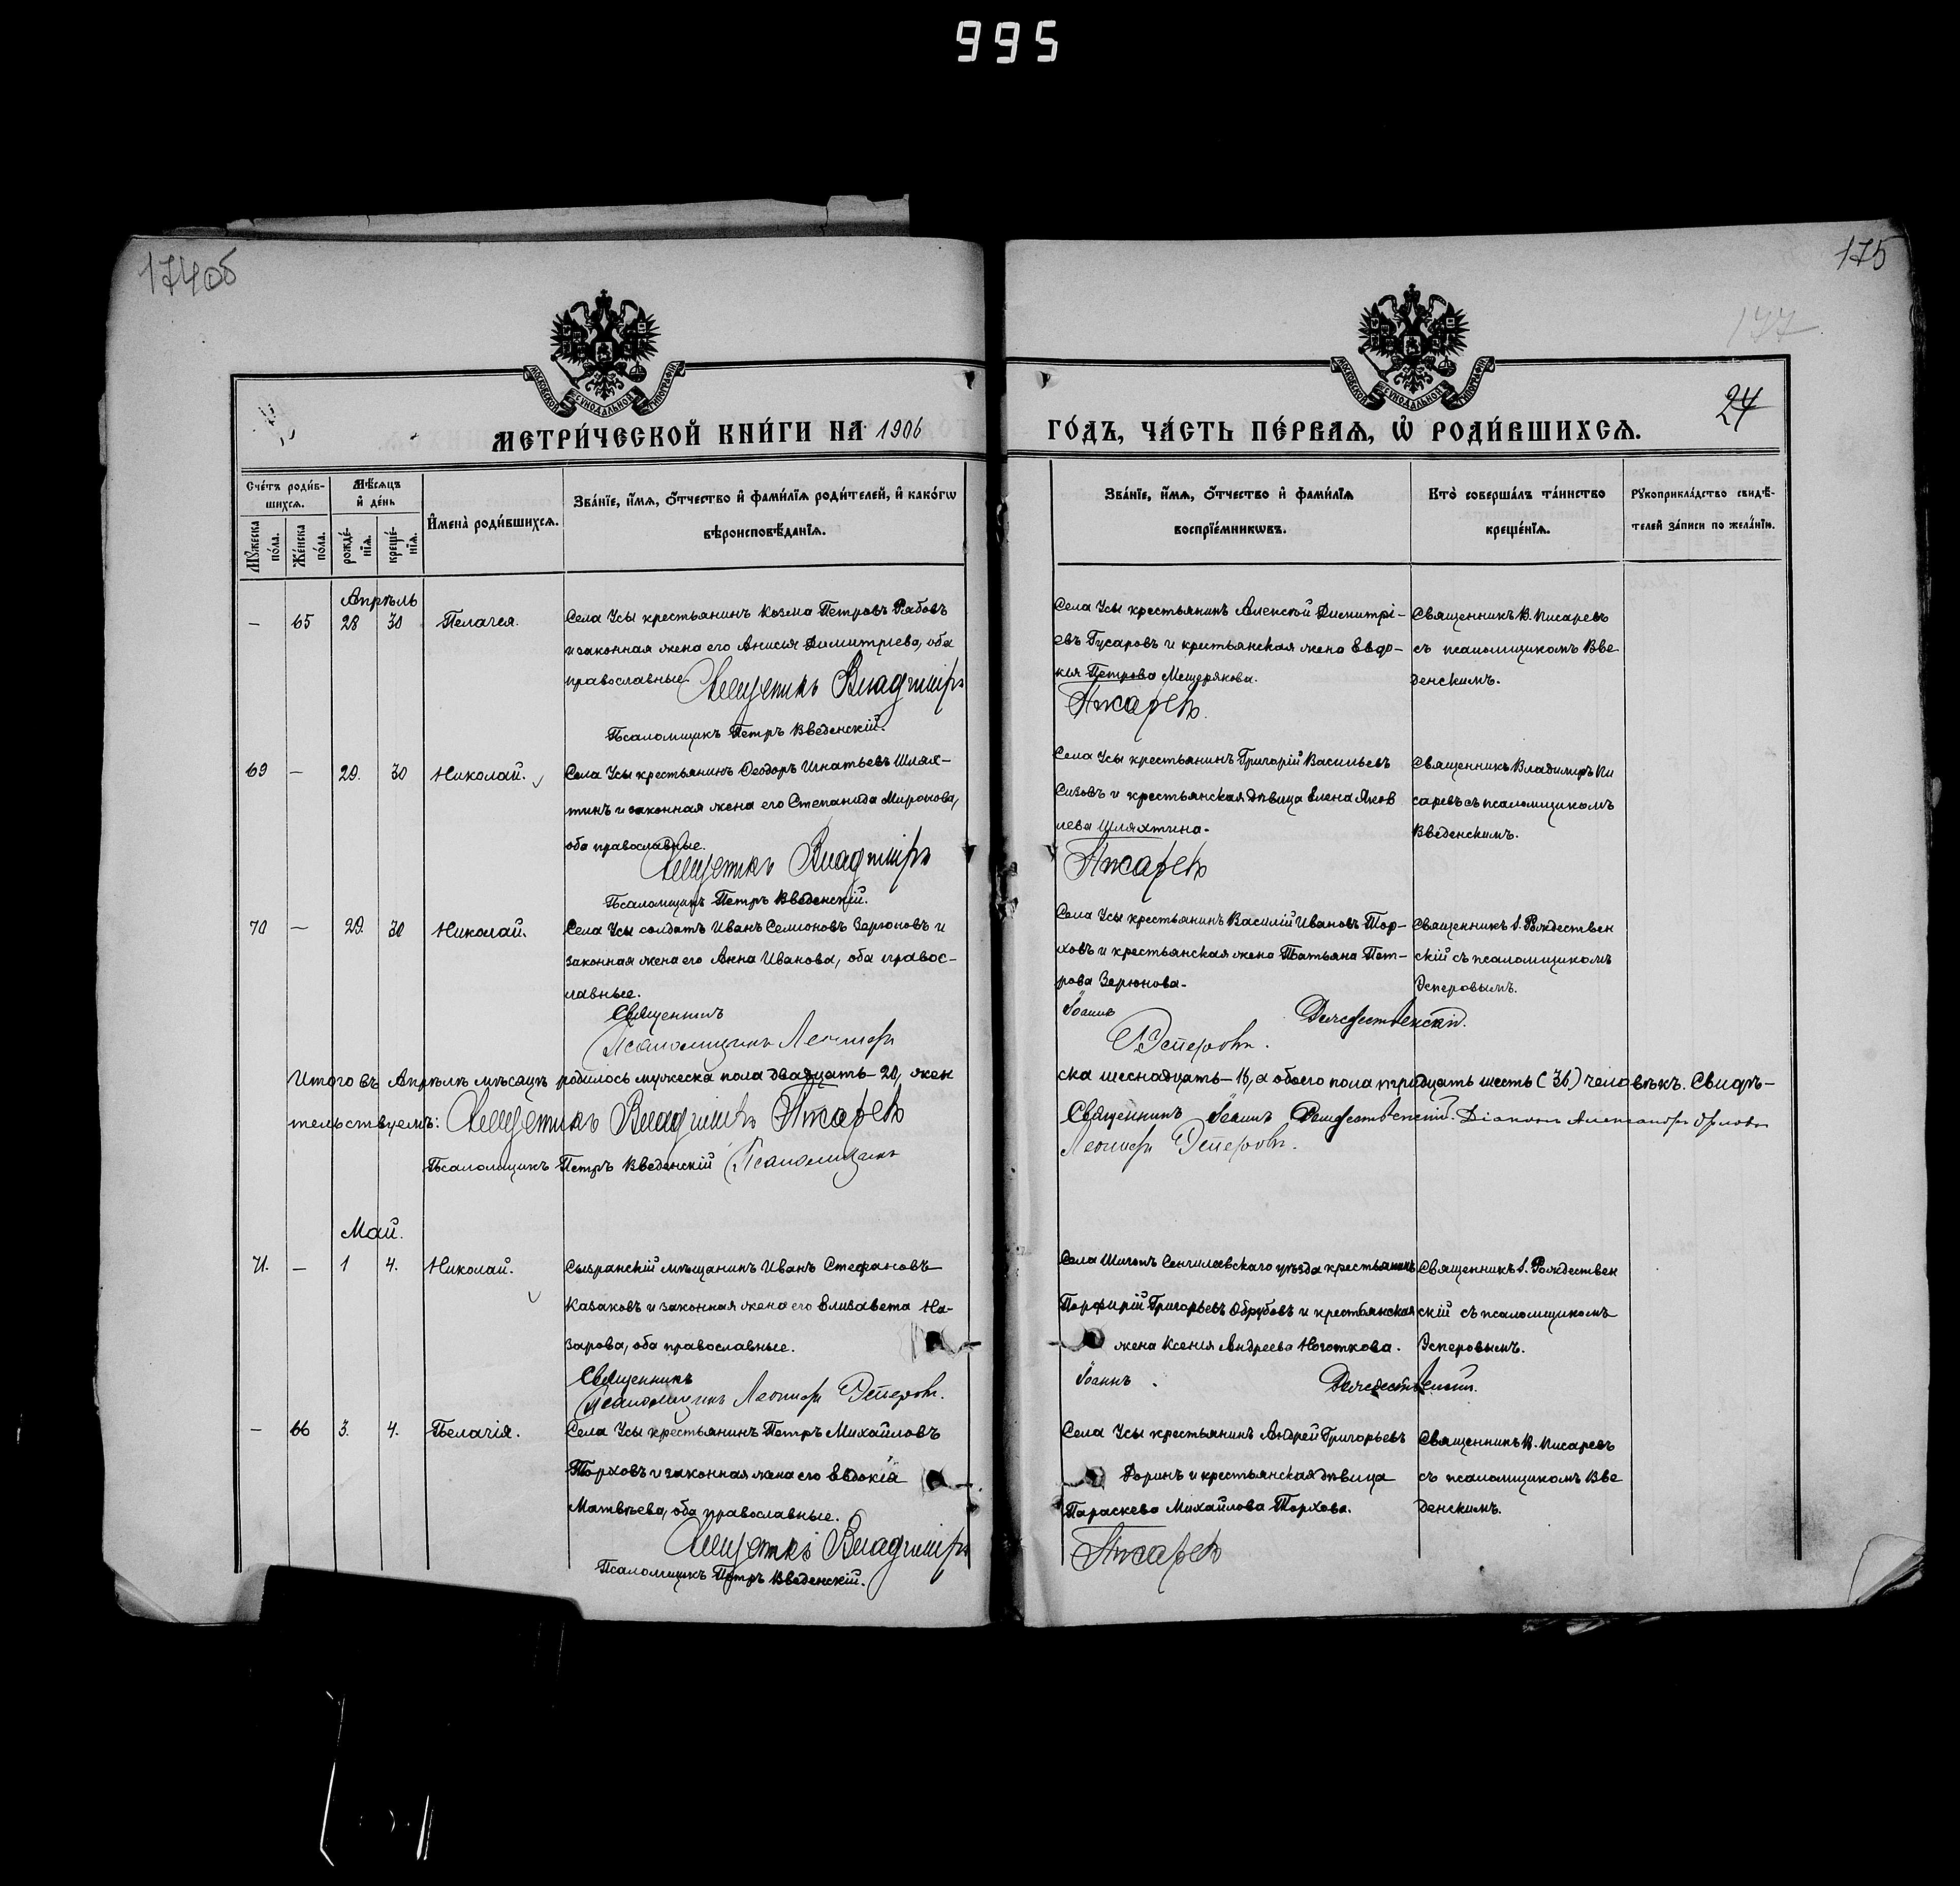 995
174об
175
177
24
МОСКОВСКОЙ СУНОДАЛЬНОЙ ТИПОГРАФІИ
МОСКОВСКОЙ СУНОДАЛЬНОЙ ТИПОГРАФІИ
МЕТРИ́ЧЕСКОЙ КНИ́ГИ НА 1906
ГО́ДЪ, ЧА́СТЬ ПЕ́РВАѦ, Ѡ҆ РОДИ́ВШИХСѦ.
Сче́тъ роди́в-
шихсѧ.
Мꙋ́жеска по́ла.
Же́нска по́ла.
Мѣ́сѧцъ
и҆ де́нь
рожде́-
нїѧ.
креще́-
нїѧ.
И҆мена̀ роди́вшихсѧ.
Зва́нїе, и҆́мѧ, ѻ҆́тчество и҆ фами́лїѧ роди́телей, и҆ како́гѡ
вѣроисповѣ́данїѧ.
Зва́нїе, и҆́мѧ, ѻ҆́тчество и҆ фами́лїѧ
воспрїе́мникѡвъ.
Кто̀ соверша́лъ та́инство
креще́нїѧ.
Рꙋкоприкла́дство свидѣ́-
телей за́писи по жела́нїю.
Апрѣль
— 65 28 30 Пелагея.
Села Усы крестьянинъ Козма Петровъ Рабовъ
и законная жена его Анисья Димитріева, оба
православные.
Священникъ Владиміръ
Псаломщикъ Петръ Введенскій.
Села Усы крестьянинъ Алексѣй Димитрі-
евъ Гусаровъ и крестьянская жена Евдо-
кія Петрова Мещерякова.
Писаревъ.
Священникъ В. Писаревъ
съ псаломщикомъ Вве
денскимъ.
69 — 29. 30 Николай.
Села Усы крестьянинъ Ѳеодоръ Игнатьевъ Шлях-
тинъ и законная жена его Степанида Миронова,
оба православные.
Священникъ Владиміръ
Псаломщикъ Петръ Введенскій.
Села Усы крестьянинъ Григорій Васильевъ
Сизовъ и крестьянская дѣвица Елена Яков
лева Шляхтина.
Писаревъ
Священникъ Владиміръ Пи
саревъ съ псаломщикомъ
Введенскимъ.
70 — 29. 30 Николай.
Села Усы солдатъ Иванъ Семіоновъ Зерюновъ и
законная жена его Анна Иванова, оба правос-
лавные.
Священникъ
Псаломщикъ Леонидъ
Села Усы крестьянинъ Василій Ивановъ Тор-
ховъ и крестьянская жена Татьяна Пет-
рова Зерюнова.
Іоаннъ Рождественскій.
Эсперовъ.
Священникъ І. Рождествен
скій съ псаломщикомъ
Эсперовымъ.
Итого въ Апрѣлѣ мѣсяцѣ родилось мужеска пола двадцать — 20, жен
ска шеснадцать — 16, а обоего пола тридцать шесть (36) человѣкъ. Свидѣ-
тельствуемъ: Священникъ Владиміръ Писаревъ
Священникъ Іоаннъ Рождественскій. Діаконъ Александръ Орловъ
Псаломщикъ Петръ Введенскій Псаломщикъ
Леонидъ Эсперовъ.
Май.
71. — 1 4. Николай.
Сызранскій мѣщанинъ Иванъ Стефановъ
Казаковъ и законная жена его Елизавета На-
зарова, оба православные.
Священникъ
Псаломщикъ Леонидъ Эсперовъ.
Села Шигонъ Сенгилевскаго уѣзда крестьянинъ
Порфирій Григорьевъ Обрубовъ и крестьянская
жена Ксенія Андреева Ноготкова.
Іоаннъ Рождественскій.
Священникъ І. Рождествен
скій съ псаломщикомъ
Эсперовымъ.
— 66 3. 4. Пелагія.
Села Усы крестьянинъ Петръ Михайловъ
Торховъ и законная жена его Евдокія
Матвѣева, оба православные.
Священникъ Владиміръ
Псаломщикъ Петръ Введенскій.
Села Усы крестьянинъ Андрей Григорьевъ
Доринъ и крестьянская дѣвица
Параскева Михайлова Торхова.
Писаревъ
Священникъ В. Писаревъ
съ псаломщикомъ Вве
денскимъ.